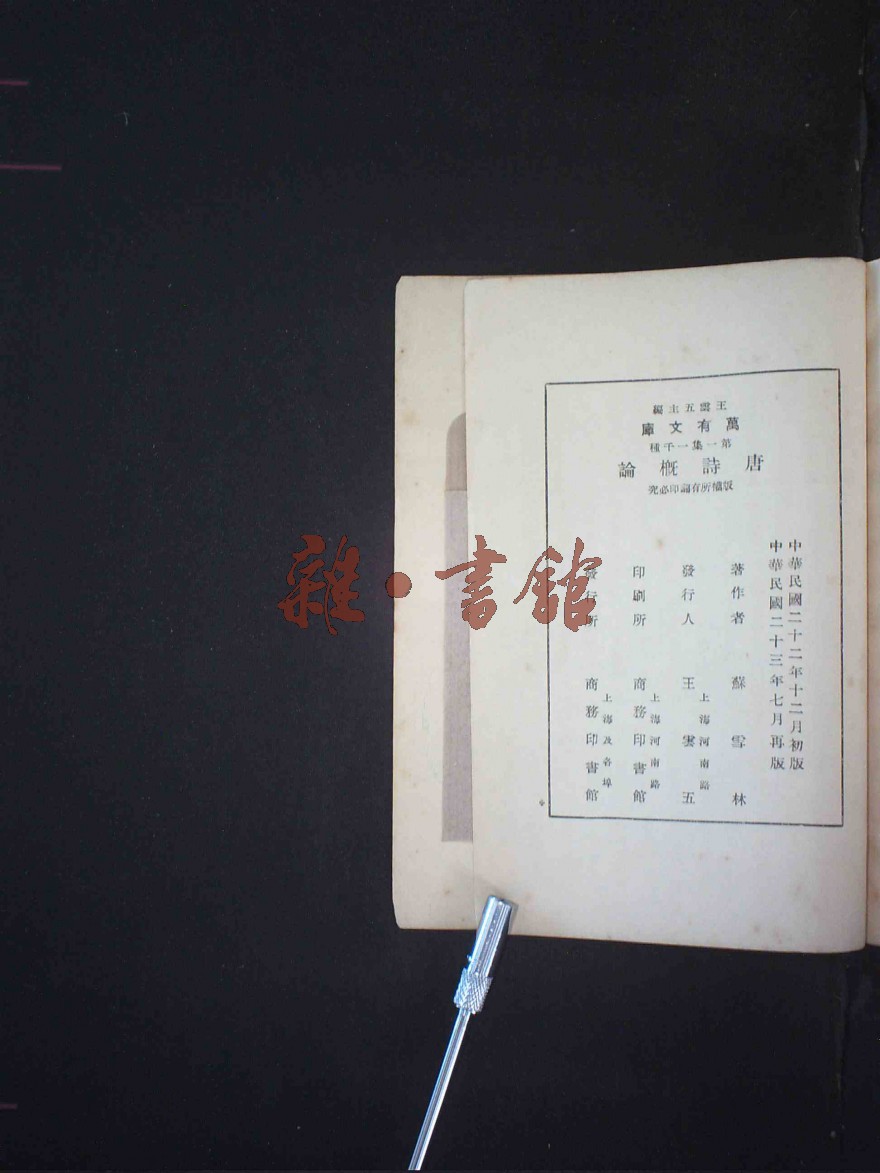 王雲五主編
萬有文庫
第一集一千種
唐詩概論
版權所有翻印必究
中華民國二十二年十二月初版
中華民國二十三年七月再版
著作者 蘇雪林
發行人 王雲五
上海河南路
印刷所 商務印書館
上海河南路
發行所 商務印書館
上海及各埠
雜·書館